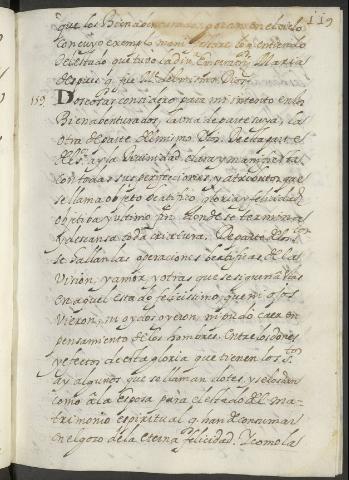 119
que los Bienaventurados gozan en el cielo
con cuyo exemplo manifestare lo q entiendo
del estado que tuvo la divi Maria
despues q fue Me del mismo Dios.
159. Dos cosas considero para mi intento en los
Bienaventurados, la una de parte suya, la
otra de parte del mismo Dios. De esta parte
del Sr ay la Divinidad clara y manifiesta
con todas sus perfecciones, y atributos, que
se llama objeto beatifico, gloria y felicidad
objetiva y ultimo fin donde se termina
y descansa toda criatura. De parte de los
Stos se hallan las operaciones beatificas de la
Vision, y amor, y otras que se siguen a estas
en aquel estado felicissimo, que ni ojos
vieron, ni oydos oyeron, ni pudo caer en
pensamiento de los hombres. Entre los dones
y efectos de esta gloria que tienen los Stos
ay algunos que se llaman dotes, y se los dan
como a la esposa para el estado del ma-
trimonio espiritual q han de consumar
en el gozo de la eterna felicidad. Y como la